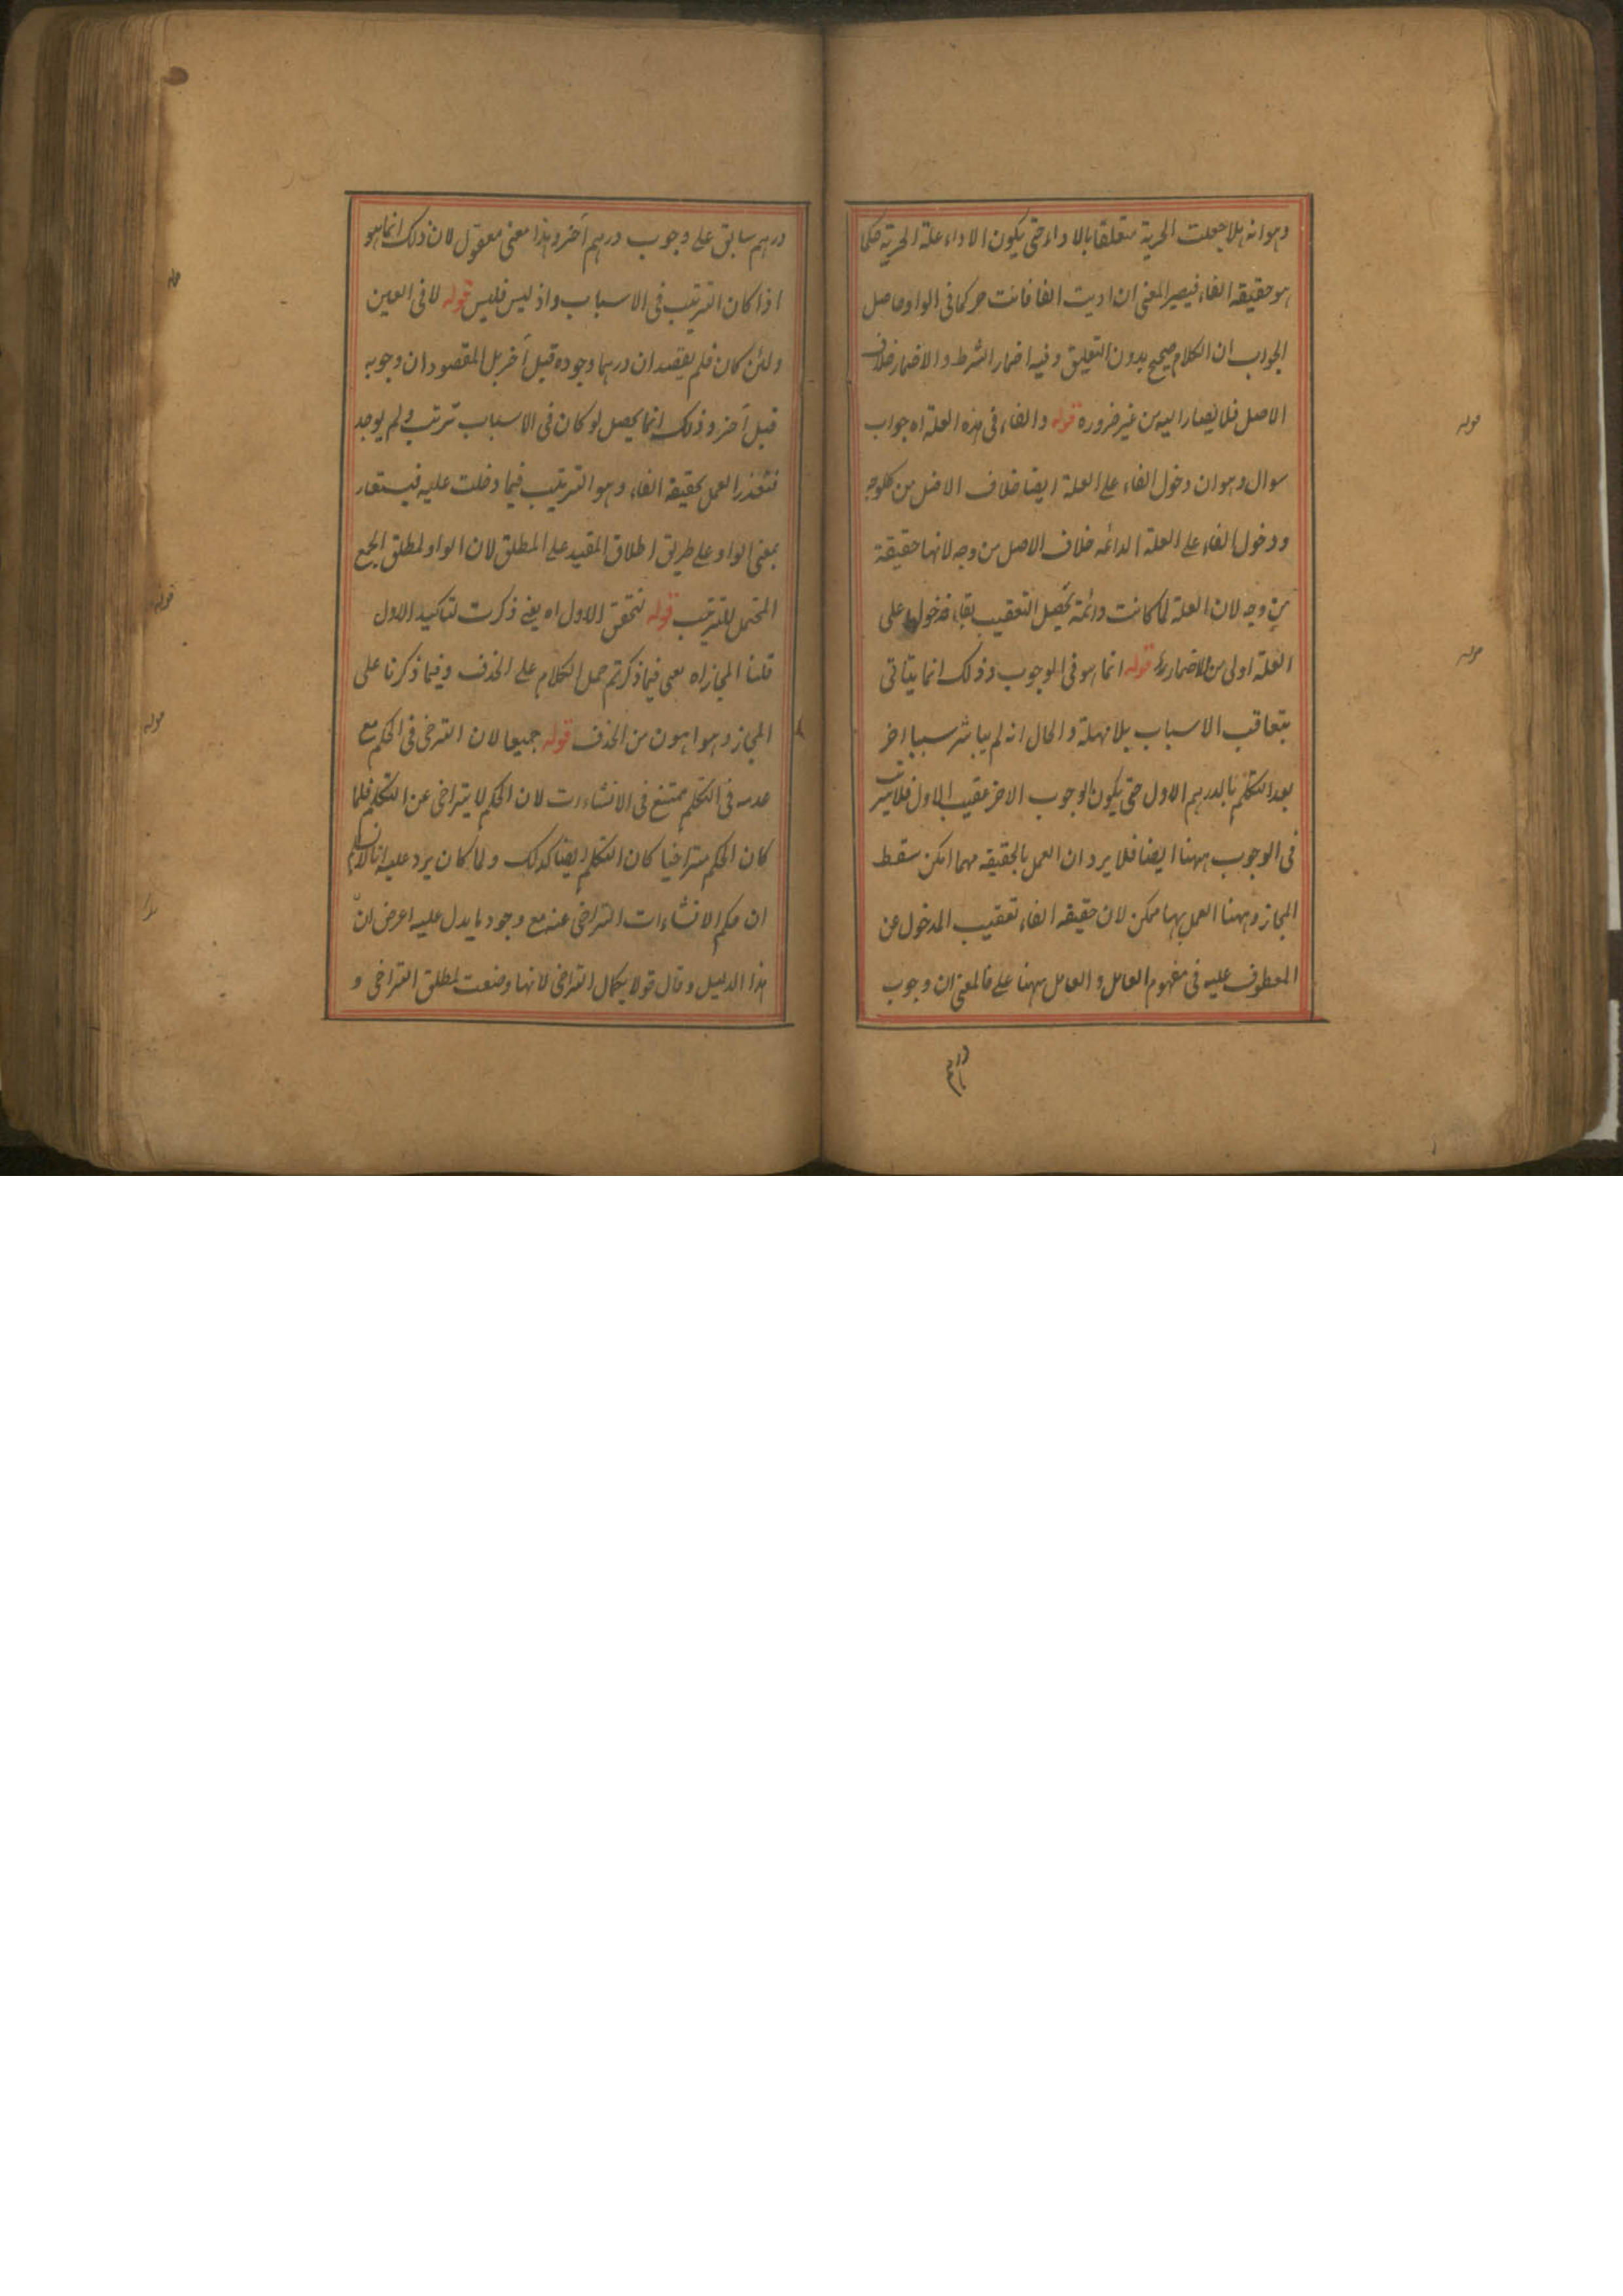 وهوانه هلا جعلت الحرية متعلقا بالاداء حتى يكون الاداء علة الحرية كما
هو حقيقة الفاء فيصير المعنى ان اديت الفا فانت حر كما فى الواو حاصل
الجواب ان الكلام صحيح بدون التعليق وفيه اضمار الشرط والاضمار خلاف
الاصل فلا يصار اليه من غير ضرورة قوله والفاء فى هذه العلة اه جواب
سوال وهو ان دخول الفاء على العلة ايضا خلاف الاصل من كل وجه
ودخول الفاء على العلة الدائمة خلاف الاصل من وجه لانها حقيقة
من وجه لان العلة لما كانت دائمة تحصل التعقيب بقاء فدخولها على
العلة اولى من الاضمار قوله انما هو فى الوجوب وذلك انما يتاتى
بتعاقب الاسباب بلا مهلة والحال انه لم يباشر سببا اخر
بعد التكلم بالدرهم الاول حتى يكون الوجوب الاخر عقيب الاول فلا ترتيب
فى الوجوب ههنا ايضا فلا يرد ان العمل بالحقيقة مهما امكن سقط
المجاز وههنا العمل بها ممكن لان حقيقة الفاء تعقيب المدخول عن
المعطوف عليه فى مفهوم العامل والعامل ههنا على فالمعنى ان وجوب
درهم سابق على وجوب درهم آخر وهذا معنى معقول لان ذلك انما هو
اذا كان الترتيب فى الاسباب واذ ليس فليس قوله لا فى العين
ولئن كان فلم يقصد ان درهما وجوده قبل آخر بل المقصود ان وجوبه
قبل آخر وذلك انما يحصل لو كان فى الاسباب ترتب ولم يوجد
فتعذر العمل بحقيقة الفاء وهو الترتيب فيما دخلت عليه فيستعار
بمعنى الواو على طريق اطلاق المقيد على المطلق لان الواو لمطلق الجمع
المحتمل للترتيب قوله لتحقق الاول اه يعنى ذكرت لتاكيد الاول
قلنا المجاز اه يعنى فيما ذكرتم حمل الكلام على الحذف وفيما ذكرنا على
المجاز وهو اهون من الحذف قوله جميعا لان التراخى فى الحكم مع
عدمه فى التكلم ممتنع فى الانشاءات لان الحكم لا يتراخى عن التكلم فلما
كان الحكم متراخيا كان التكلم ايضا كذلك ولما كان يرد عليه انا لانسلم
ان حكم الانشاءات التراخى عنه مع وجود ما يدل عليه اعرض ان
هذا الدليل وقال قولا بكمال التراخى لانها وضعت لمطلق التراخى و
قوله
قوله
قوله
قوله